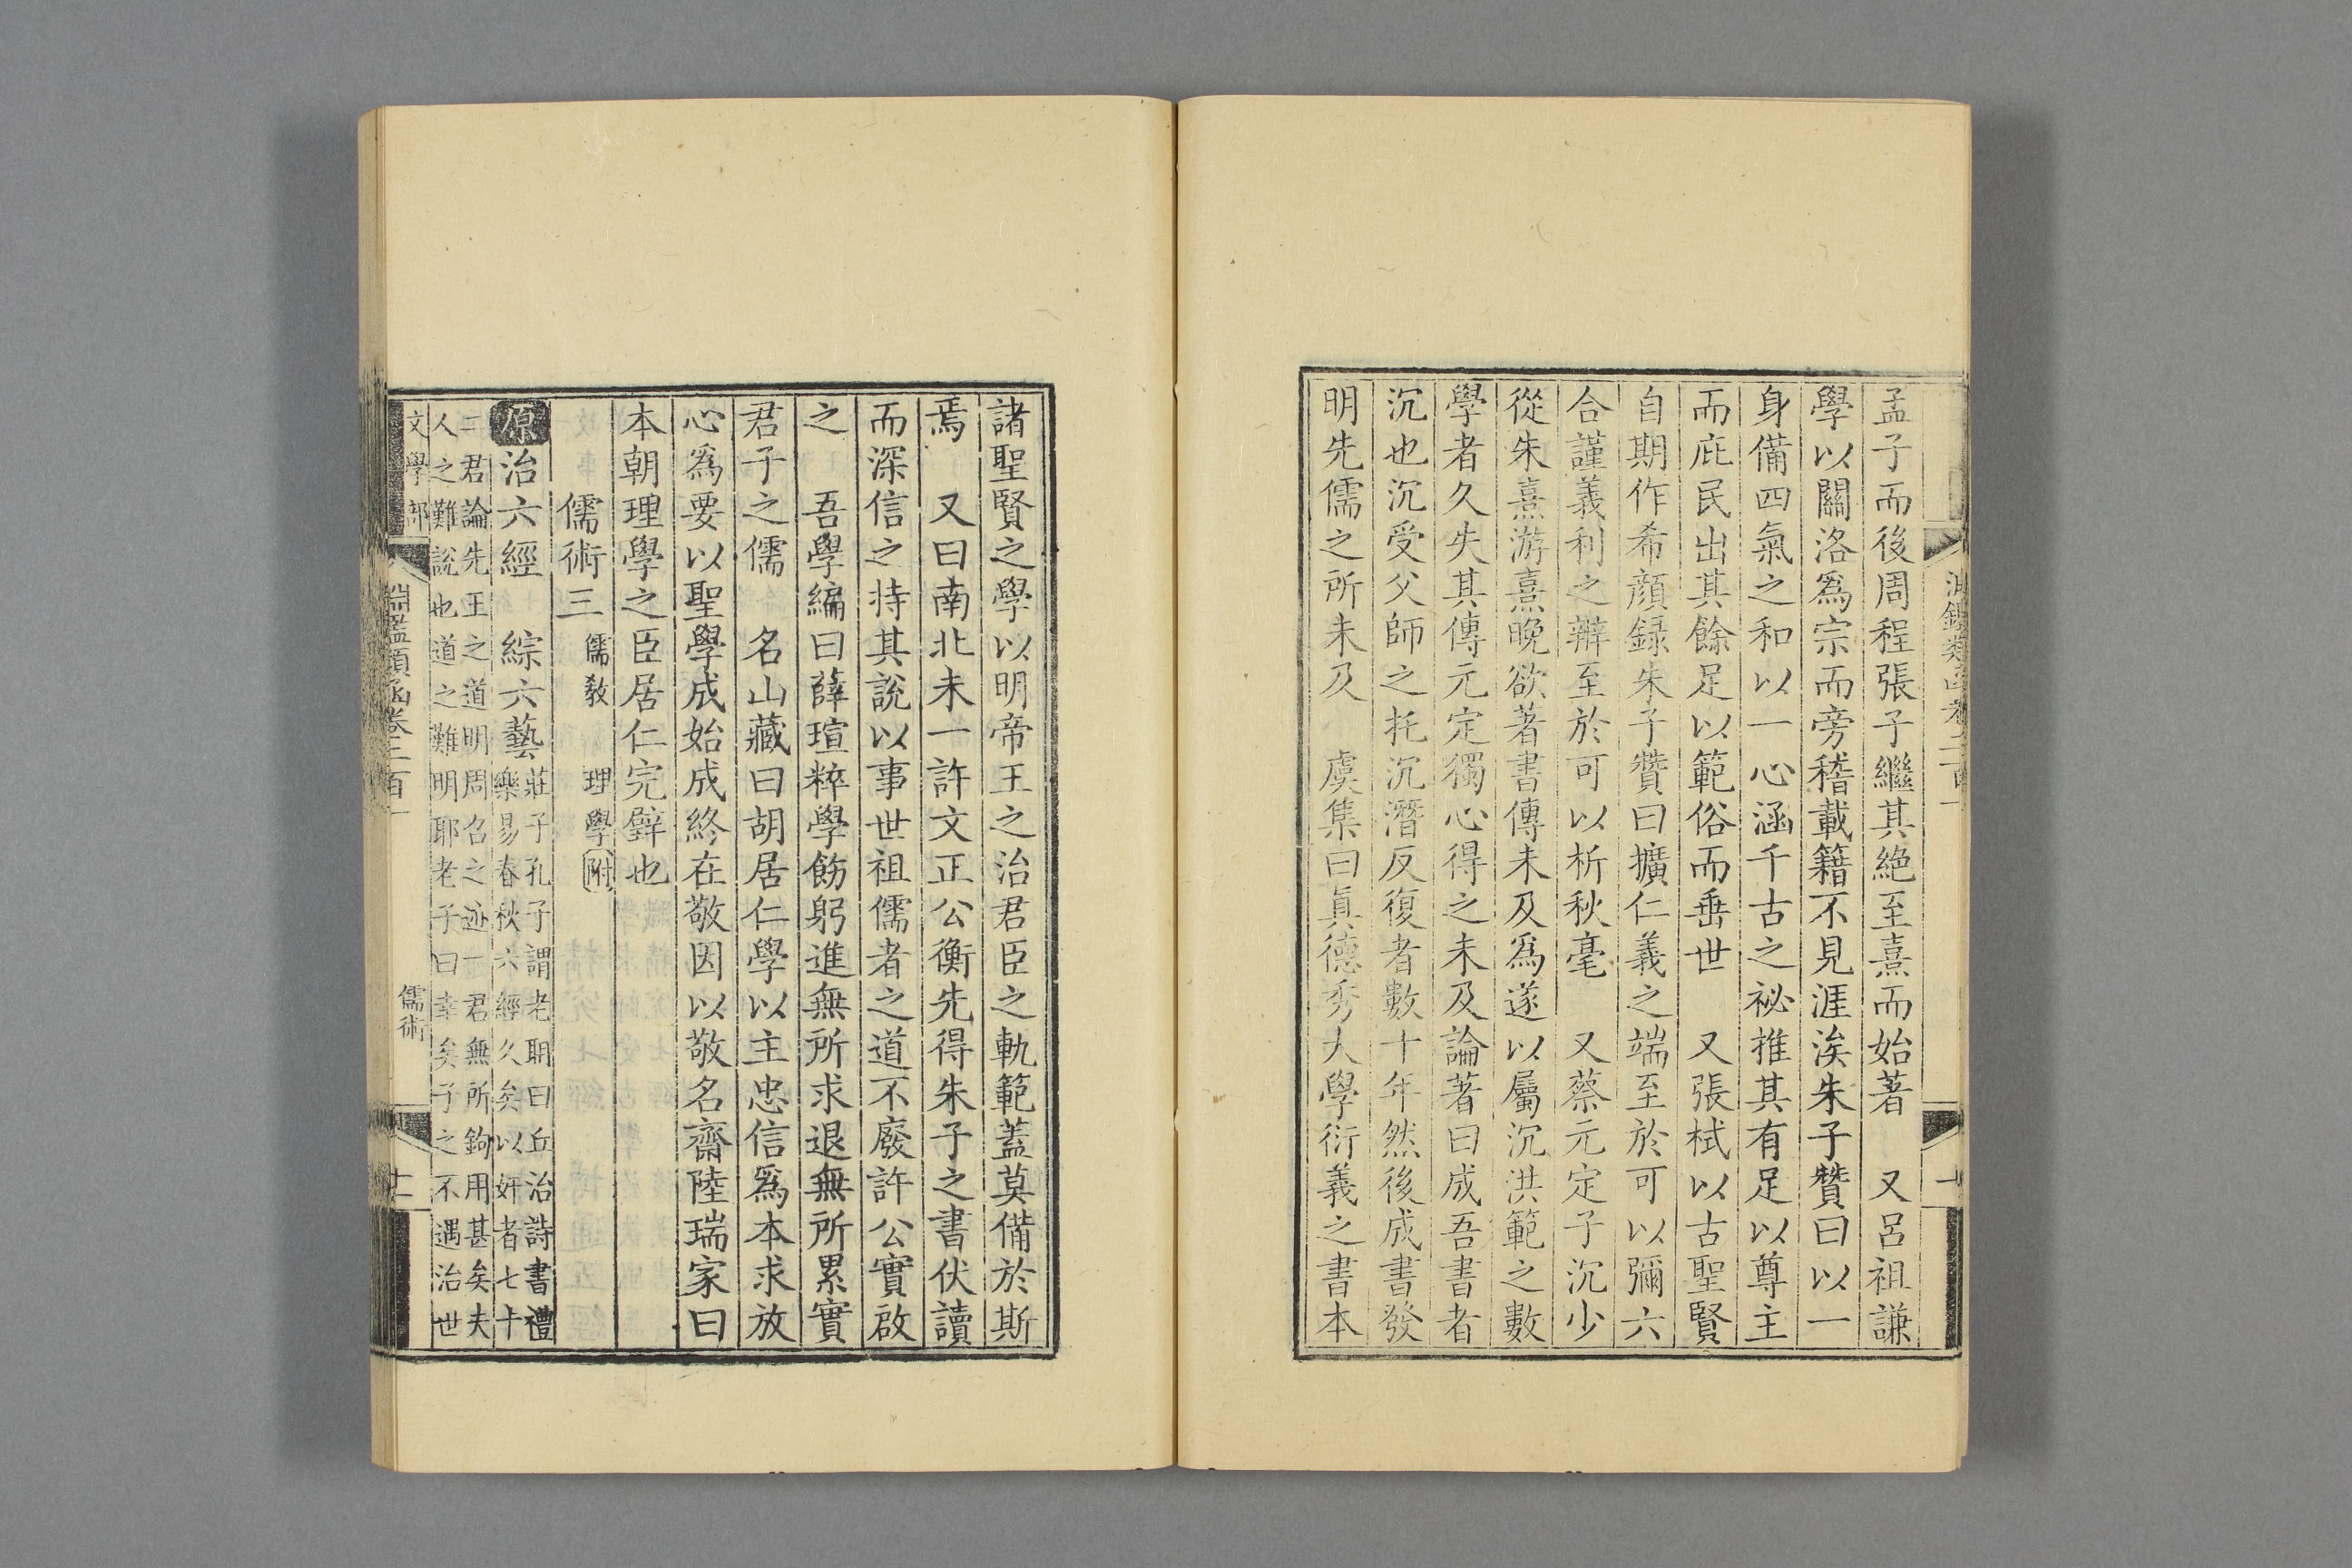 孟子而後周程張子繼其絶至熹而始著　又呂祖謙
學以關洛爲宗而旁稽載籍不見涯涘朱子贊曰以一
身備四氣之和以一心涵千古之祕推其有足以尊主
而庇民出其餘足以範俗而垂世　又張栻以古聖賢
自期作希顔録朱子贊曰擴仁義之端至於可以彌六
合謹義利之辨至於可以析秋毫　又蔡元定子沉少
從朱熹游熹晚欲著書傳未及爲遂以屬沉洪範之數
學者久失其傳元定獨心得之未及論著曰成吾書者
沉也沉受父師之托沉潛反復者數十年然後成書發
明先儒之所未及　虞集曰眞德秀大學衍義之書本
諸聖賢之學以明帝王之治君臣之軌範蓋莫備於斯
焉　又曰南北未一許文正公衡先得朱子之書伏讀
而深信之持其說以事世祖儒者之道不廢許公實啟
之　吾學編曰薛瑄粹學飭躬進無所求退無所累實
君子之儒　名山藏曰胡居仁學以主忠信爲本求放
心爲要以聖學成始成終在敬因以敬名齋陸瑞家曰
本朝理學之臣居仁完璧也
儒術三　儒教　理學附
原治六經　綜六藝莊子孔子謂老聃曰丘治詩書禮
樂易春秋六經久矣以奸者七十
二君論先王之道明周召之迹一君無所鉤用甚矣夫
人之難說也道之難明耶老子曰幸矣子之不遇治世
文學部
淵鑑類函卷二百一
儒術
十一